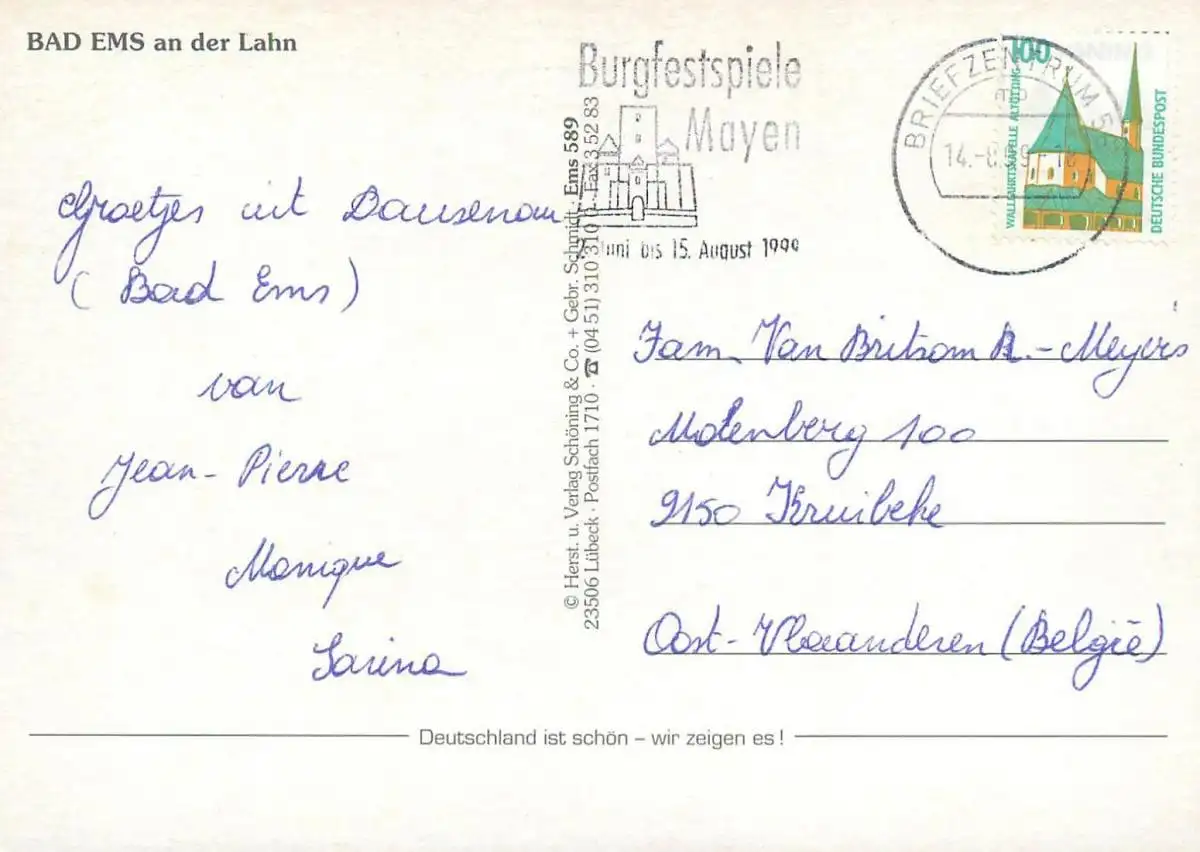 BAD EMS an der Lahn
Groetjes uit Dausenau
(Bad Ems)
van
Jean-Pierre
Monique
Sarina
© Herst. u. Verlag Schöning & Co. + Gebr. Schmidt · Ems 589
23506 Lübeck · Postfach 1710 · ☎ (04 51) 310 310 Fax 3 52 83
Burgfestspiele
Mayen
Juni bis 15. August 1999
BRIEFZENTRUM 5
14.-8.
100
WALLFAHRTSKAPELLE ALTÖTTING
DEUTSCHE BUNDESPOST
Fam. Van Britsom R.-Meyers
Molenberg 100
9150 Kruibeke
Oost-Vlaanderen (België)
Deutschland ist schön – wir zeigen es!